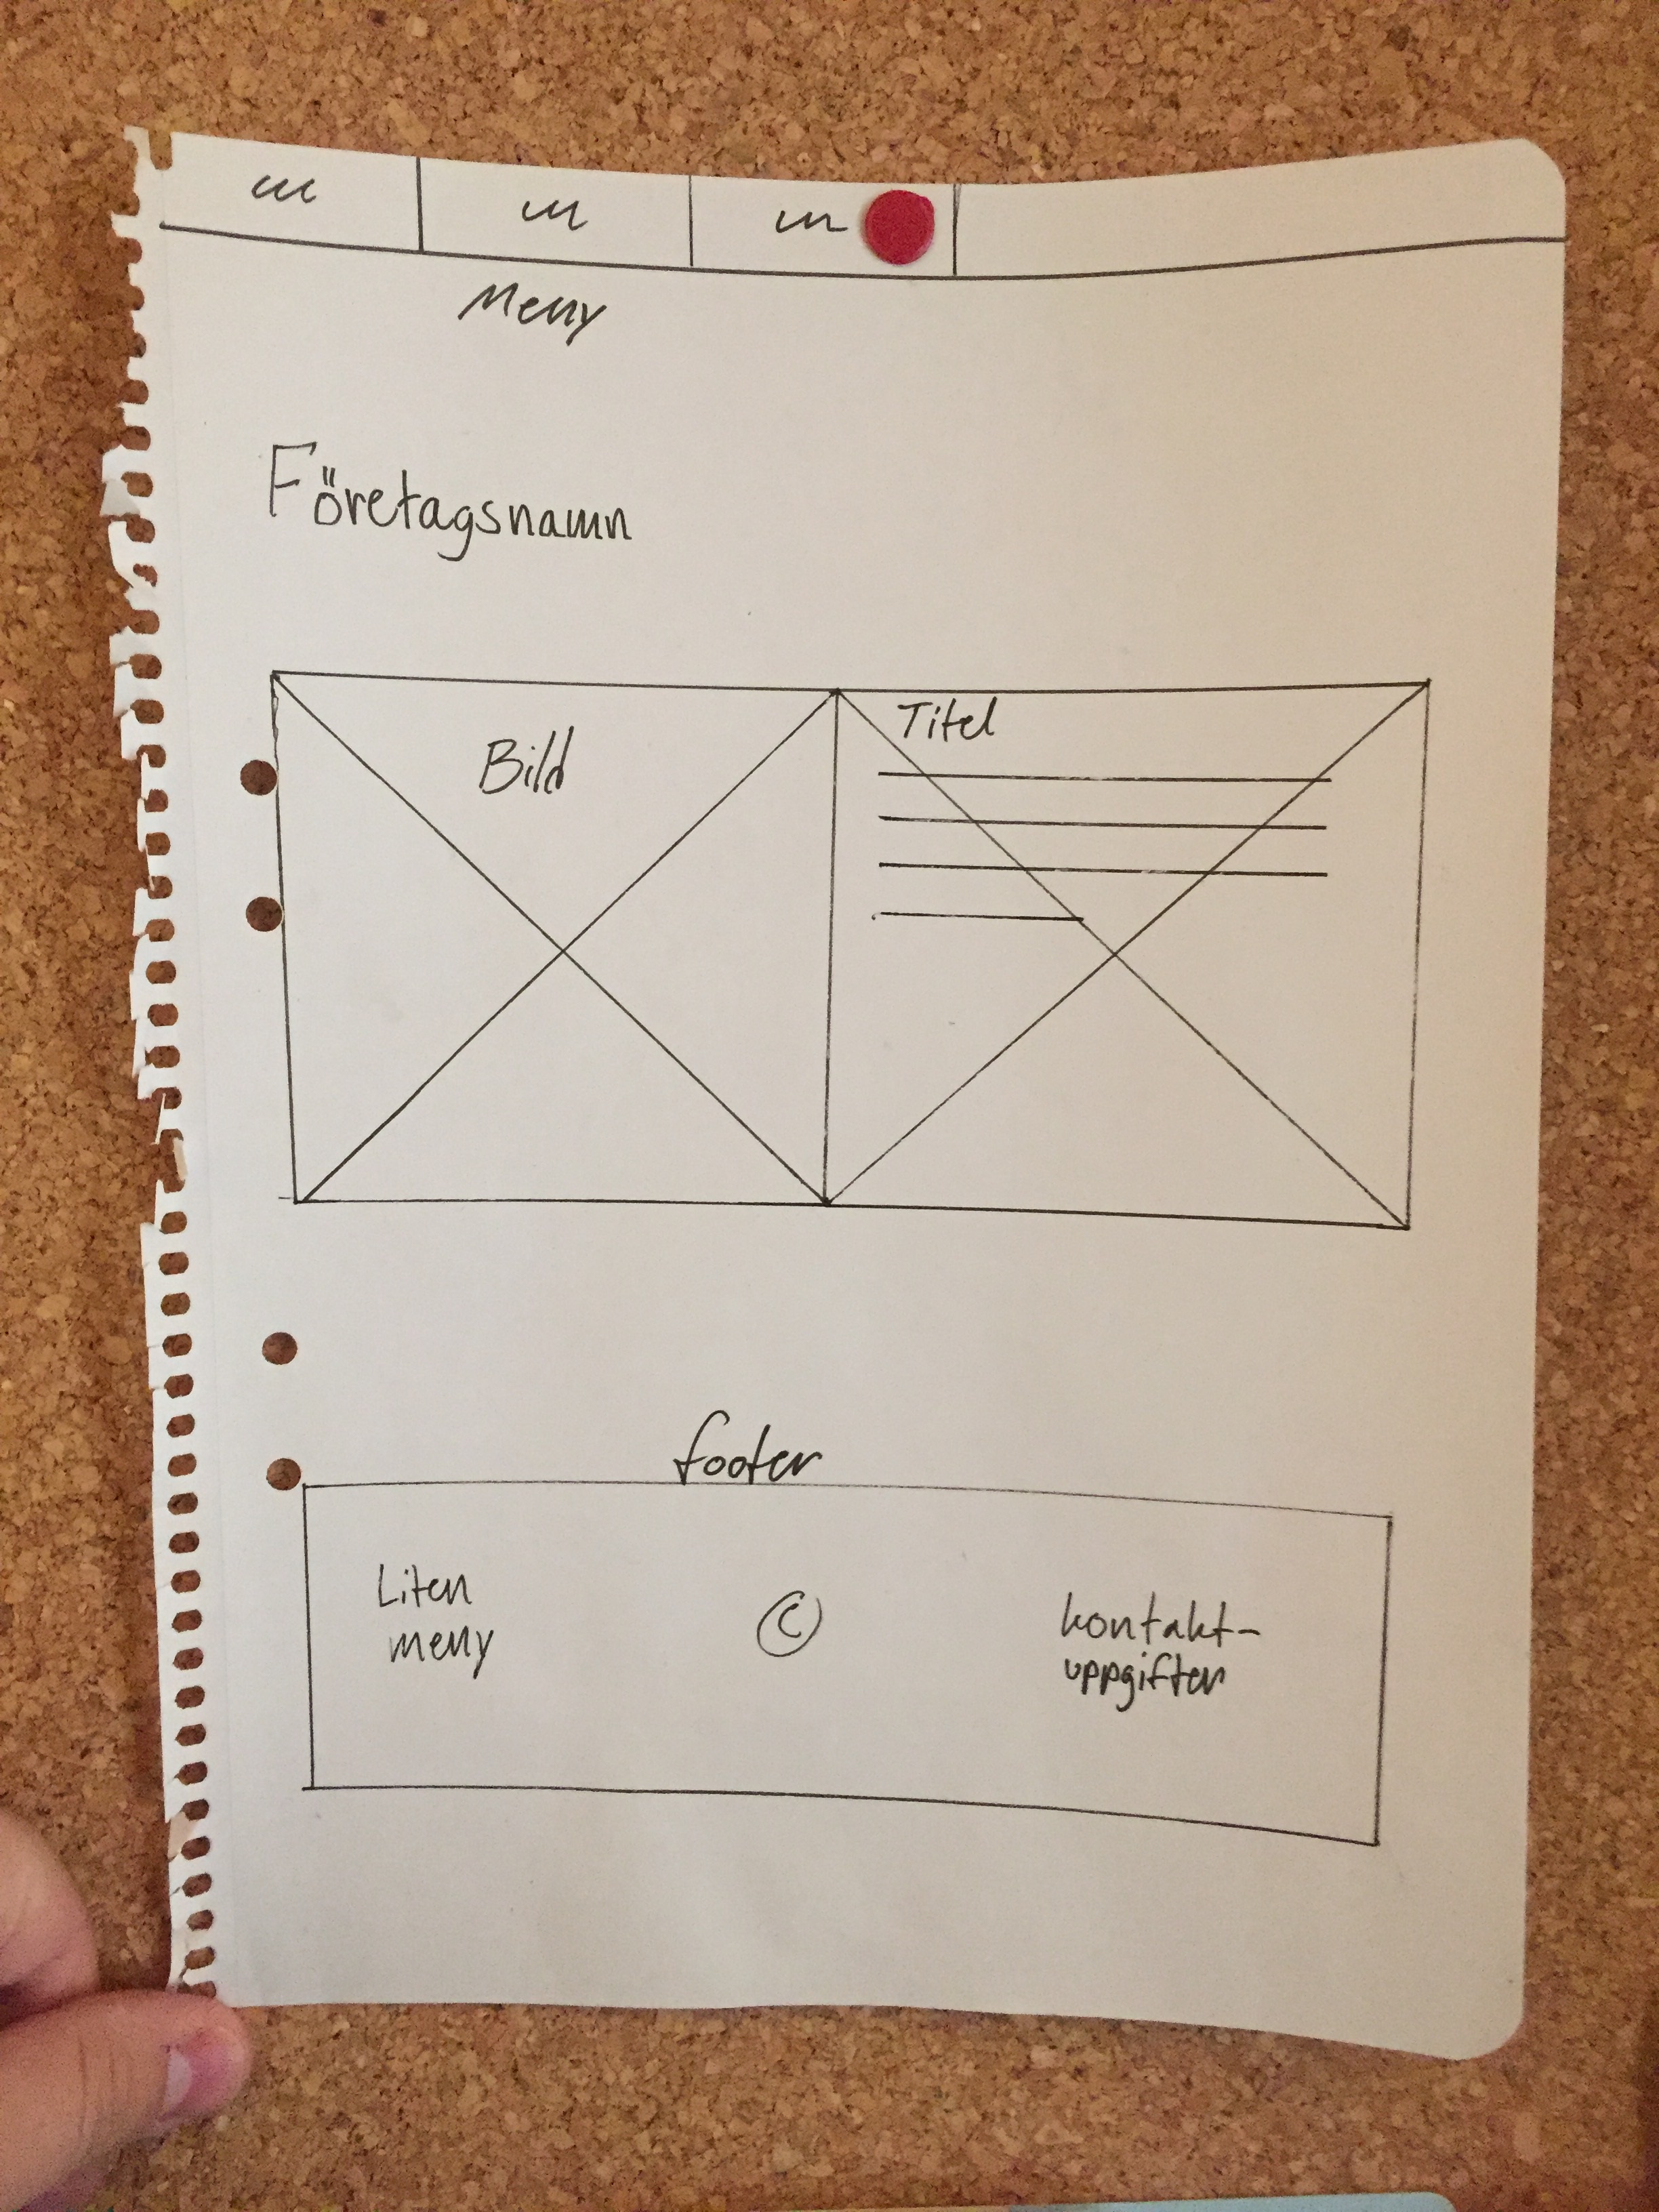 Meny
Företagsnamn
Bild
Titel
footer
Liten
meny
©
kontakt-
uppgifter